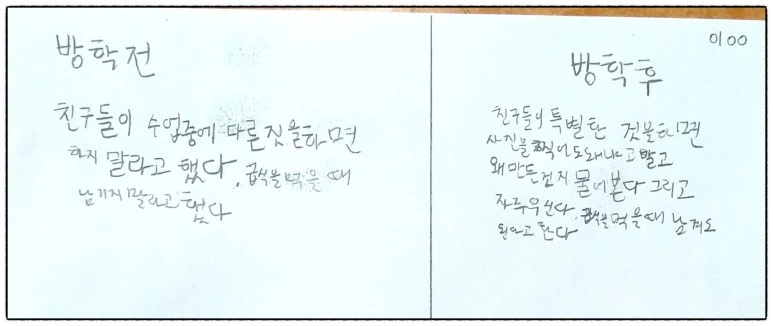 방학전
친구들이 수업중에 다른 짓을하면
하지 말라고 했다. 급식을 먹을 때
남기지 말라고 했다
이00
방학후
친구들이 특별한 것을하면
사진을 찍어도돼냐고 말고
왜 만든건지 물어본다 그리고
자주우신다. 급식을 먹을때 남겨도
된다고 한다